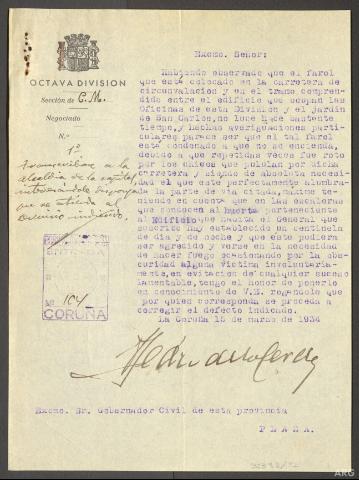 OCTAVA DIVISION
Sección de E. M.
Negociado
N.º
1º
Transcribase a la
alcaldia de la capital,
interesándole disponga
que se atienda al
servicio indicado.
ENTRADA
Nº 104
CORUÑA
Excmo. Señor:
Habiendo observado que el farol
que está colocado en la carretera de
circunvalación y en el tramo compren-
dido entre el edificio que ocupan las
Oficinas de esta División y el jardin
de San Carlos, no luce hace bastante
tiempo, y hechas averiguaciones parti-
culares parece ser que el tal farol
está condenado a que no se encienda,
debido a que repetidas veces fué roto
por los chicos que pululan por dicha
carretera y siendo de absoluta necesi-
dad el que esté perfectamente alumbra-
da la parte de via citada, máxime te-
niendo en cuenta que en las escaleras
que conducen al huerto perteneciente
al Edificio que habita el General que
suscribe hay establecido un centinela
de dia y de noche y que éste pudiera
ser agredido y verse en la necesidad
de hacer fuego ocasionando por la obs-
curidad alguna víctima involuntaria-
mente, en evitación de cualquier suceso
lamentable, tengo el honor de ponerlo
en conocimiento de V.E. rogándole que
por quien corresponda se proceda a
corregir el defecto indicado.
La Coruña 15 de marzo de 1934
Pedro de la Cerda
Excmo. Sr. Gobernador Civil de esta provincia
PLAZA.
ARG